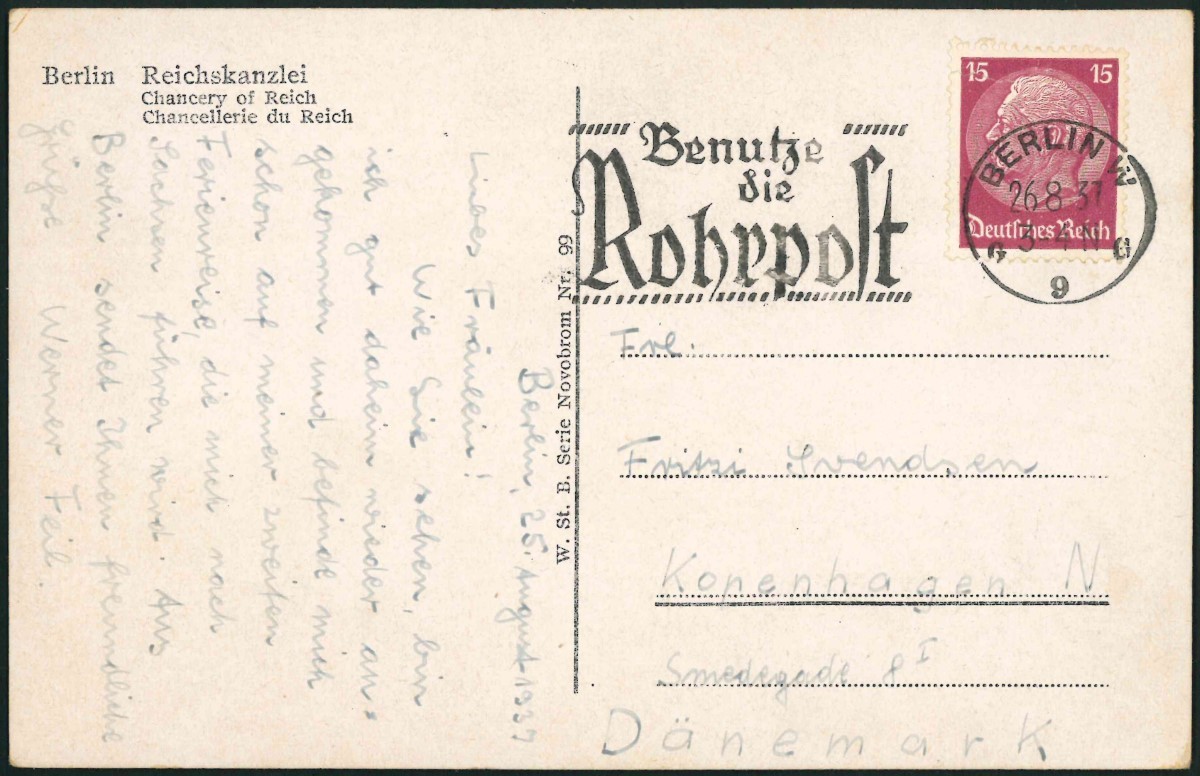 Berlin Reichskanzlei
Chancery of Reich
Chancellerie du Reich
Berlin, 25. August 1937
Liebes Fräulein!
Wie Sie sehen, bin
ich gut daheim wieder an-
gekommen und befinde mich
schon auf meiner zweiten
Ferienreise, die mich nach
Sachsen führen wird. Aus
Berlin sendet Ihnen freundliche
Grüße Werner Feil.
W. St. B. Serie Novobrom Nr. 99
Benutze
die
Rohrpost
15 15
Deutsches Reich
BERLIN W
26.8.37
3-4 N
G G
9
Frl.
Fritzi Svendsen
Kopenhagen N
Smedegade 8 I
Dänemark